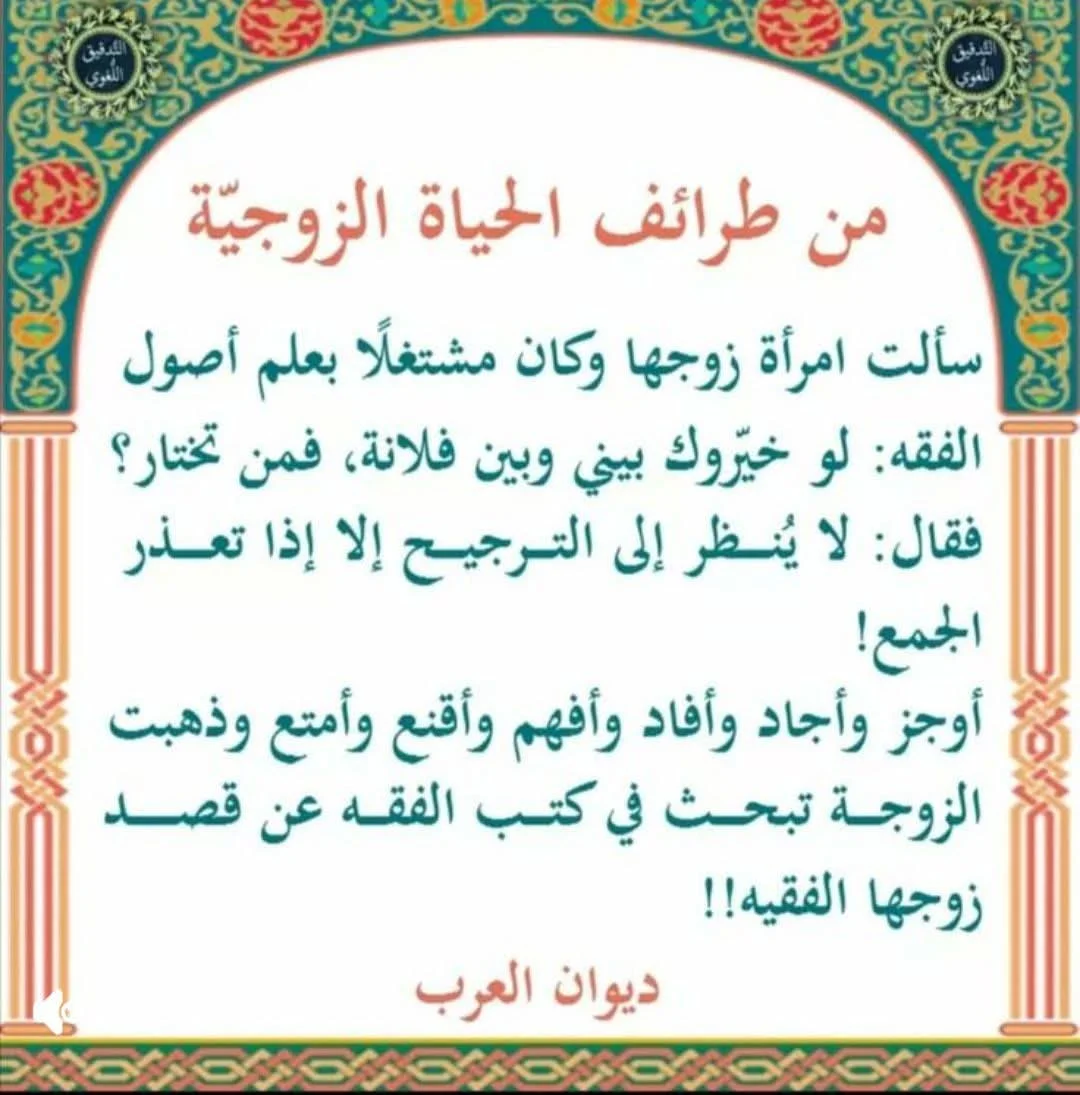 التدقيق
اللغوي
التدقيق
اللغوي
من طرائف الحياة الزوجيّة
سألت امرأة زوجها وكان مشتغلًا بعلم أصول
الفقه: لو خيّروك بيني وبين فلانة، فمن تختار؟
فقال: لا يُنـظر إلى التـرجيـح إلا إذا تعـذر
الجمع!
أوجز وأجاد وأفاد وأفهم وأقنع وأمتع وذهبت
الزوجـة تبحـث في كتـب الفقـه عن قصـد
زوجها الفقيه!!
ديوان العرب